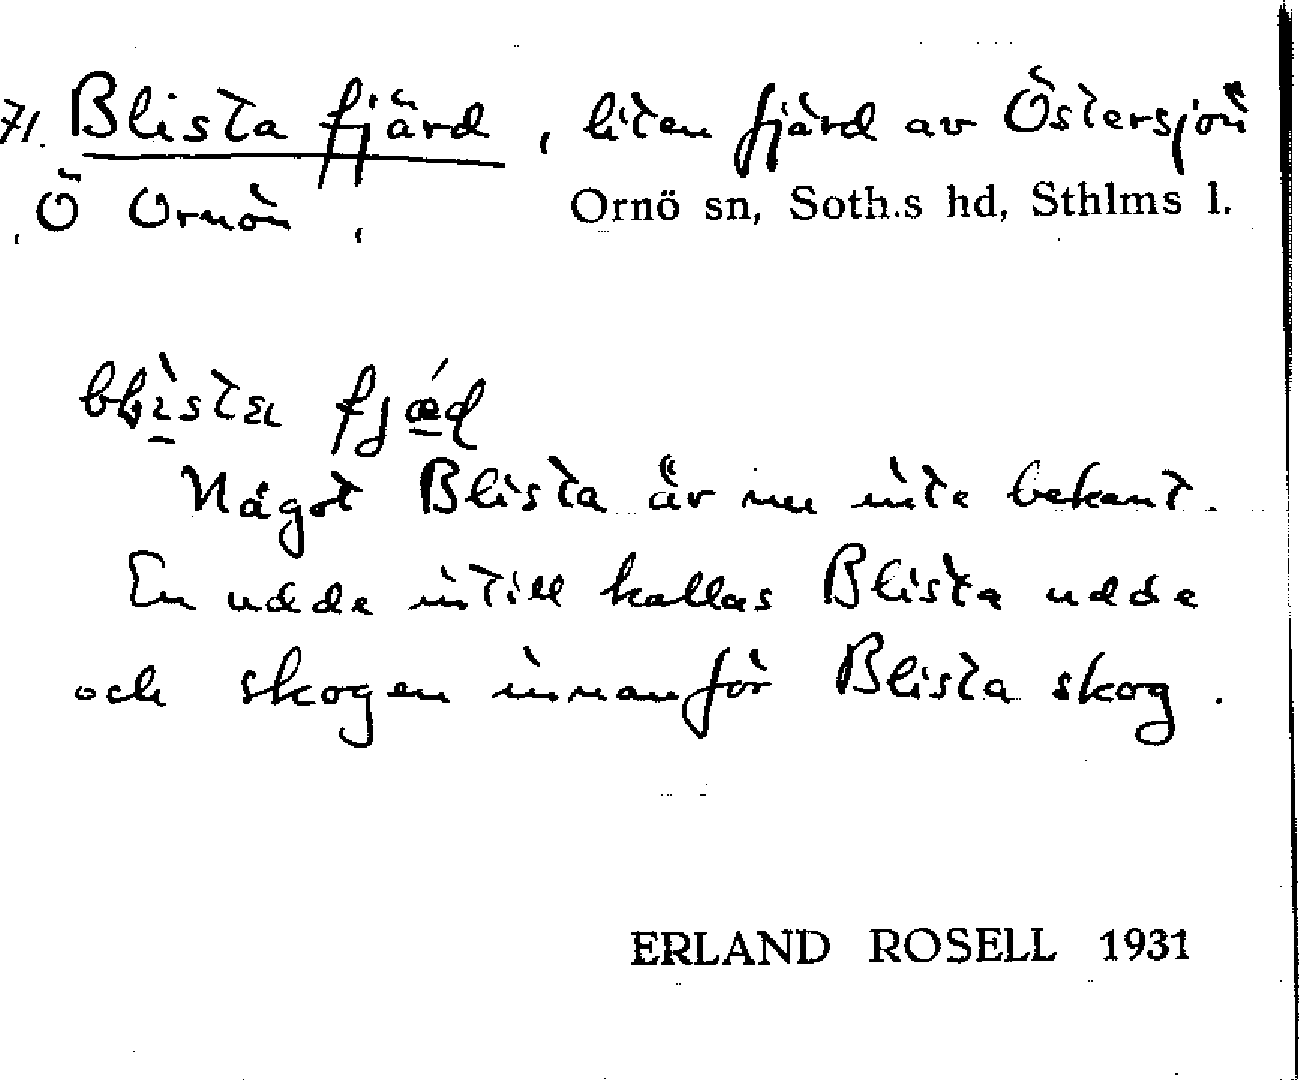 71. Blista fjärd, liten fjärd av Östersjön
Ö Ornön,
Ornö sn, Soth.s hd, Sthlms l.
Något Blista är nu inte bekant.
En udde intill kallas Blista udde
och skogen innanför Blista skog.
ERLAND ROSELL 1931